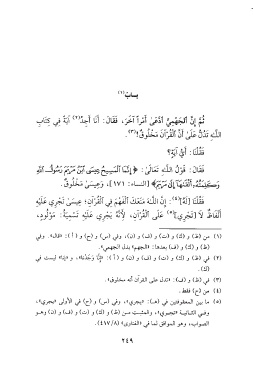 بَـابٌ (١)
ثُمَّ إِنَّ الْجَهْمِيَّ ادَّعَىٰ أَمْراً آخَرَ، فَقَالَ: أَنَا أَجِدُ(٢) آيَةً فِي كِتَابِ
اللَّهِ تَدُلُّ عَلَىٰ أَنَّ الْقُرْآنَ مَخْلُوقٌ!(٣).
فَقُلْنَا: أَيُّ آيَةٍ؟
فَقَالَ: قَوْلُ اللَّهِ تَعَالَىٰ: ﴿إِنَّمَا الْمَسِيحُ عِيسَى ابْنُ مَرْيَمَ رَسُولُ اللَّهِ
وَكَلِمَتُهُ أَلْقَاهَا إِلَىٰ مَرْيَمَ﴾ [النساء: ١٧١]، وَعِيسَىٰ مَخْلُوقٌ.
فَقُلْنَا [لَهُ](٤): إِنَّ اللَّهَ مَنَعَكَ الْفَهْمَ فِي الْقُرْآنِ؛ عِيسَىٰ تَجْرِي عَلَيْهِ
أَلْفَاظٌ لَا [تَجْرِي](٥) عَلَى الْقُرْآنِ، لِأَنَّهُ يَجْرِي عَلَيْهِ تَسْمِيَةُ: مَوْلُودٍ،
(١) من (ظ) و (ك) و (ت) و (ف) و (ن)، وفي (س) و (ج) و (أ): «قال». وفي
(ظ) و (ك) و (ف) بعدها: «الجهم» بدل الجهمي».
(٢) في (ظ) و (ك) و (ت) و (ف) و (ن) و (أ): «إنا وجدنا»، و «إنا» ليست في
(ك).
(٣) في (ظ) و (ف): «تدل على القرآن أنه مخلوق».
(٤) من (ج) فقط.
(٥) ما بين المعقوفتين في (هـ): «يجري»، وفي (س) و (ج) في الأولى «يجري»،
وفي الثانية «تجري»، والمثبت من (ظ) و (ك) و (ت) و (ف) و (ن) وهو
الصواب، وهو الموافق لما في «الفتاوى» (٤١٧/٨).
٢٤٩